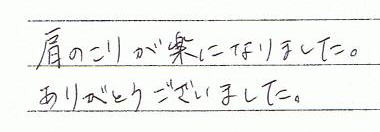 肩のこりが楽になりました。
ありがとうございました。